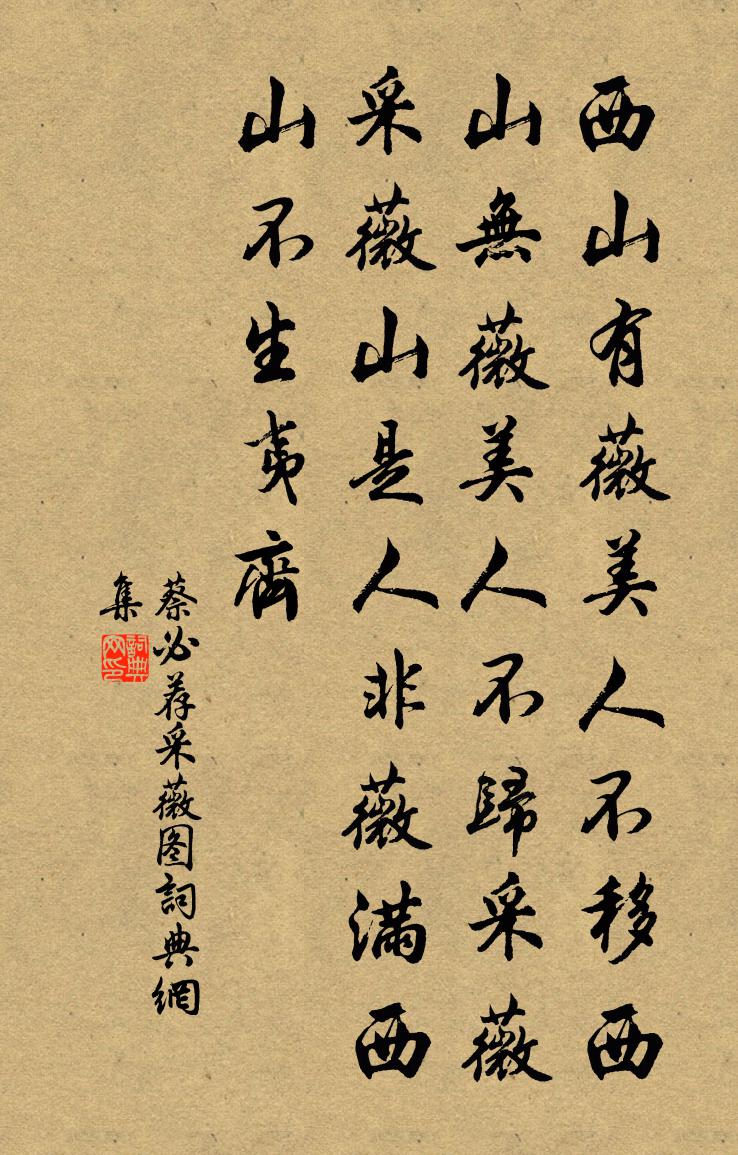 西山有薇美人不移西
山無薇美人不歸采薇
采薇山是人非薇满西
山不生夷齊
蔡必荐采薇图詞典網
集
詞典
网印